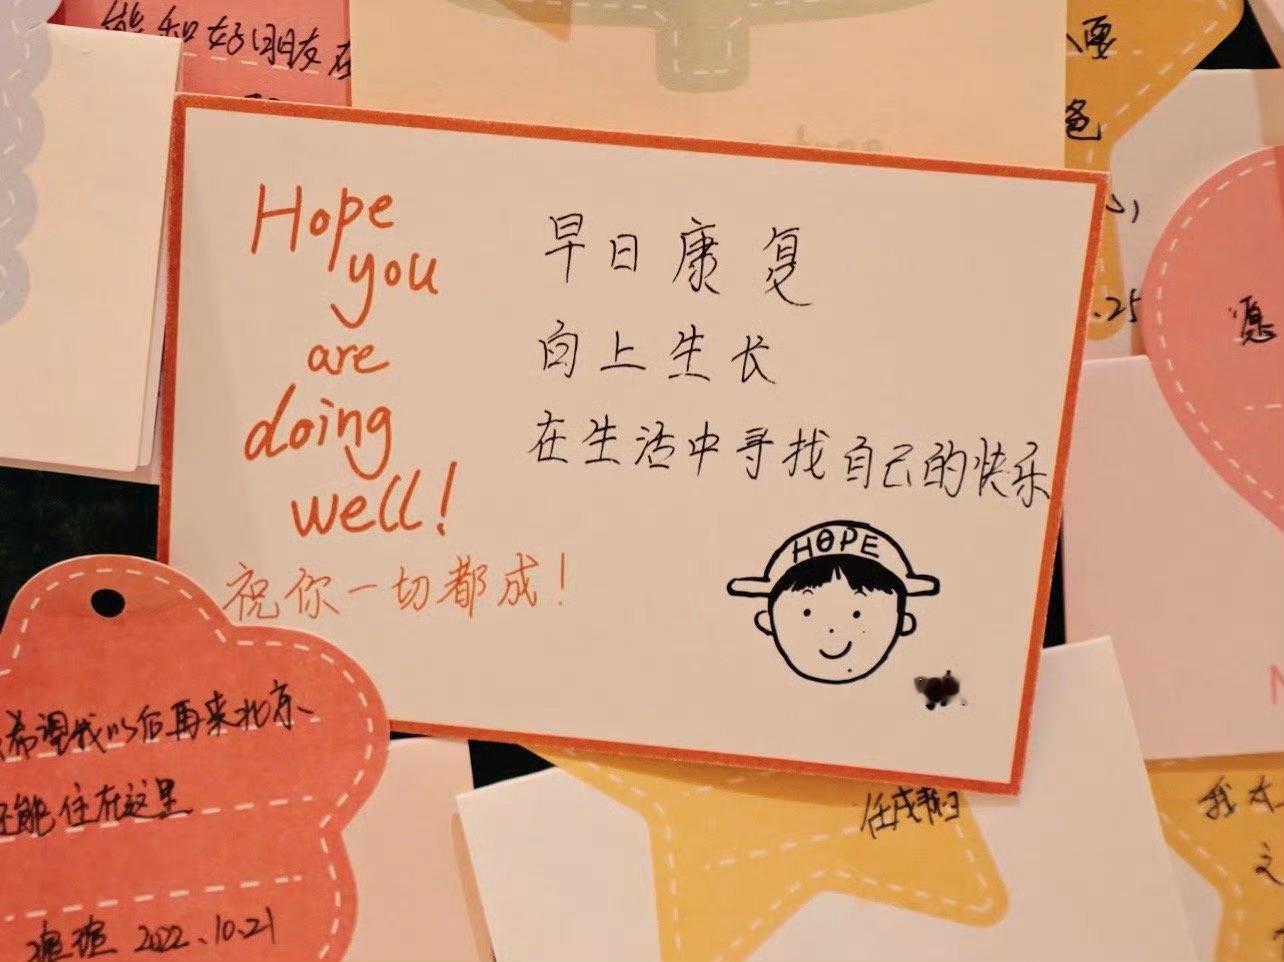 能和好朋友在
Hope
you
are
doing
well!
祝你一切都成!
早日康复
向上生长
在生活中寻找自己的快乐
HOPE
希望我以后再来北京
还能住在这里
2022.10.21
tree
爸
.25
愿
我